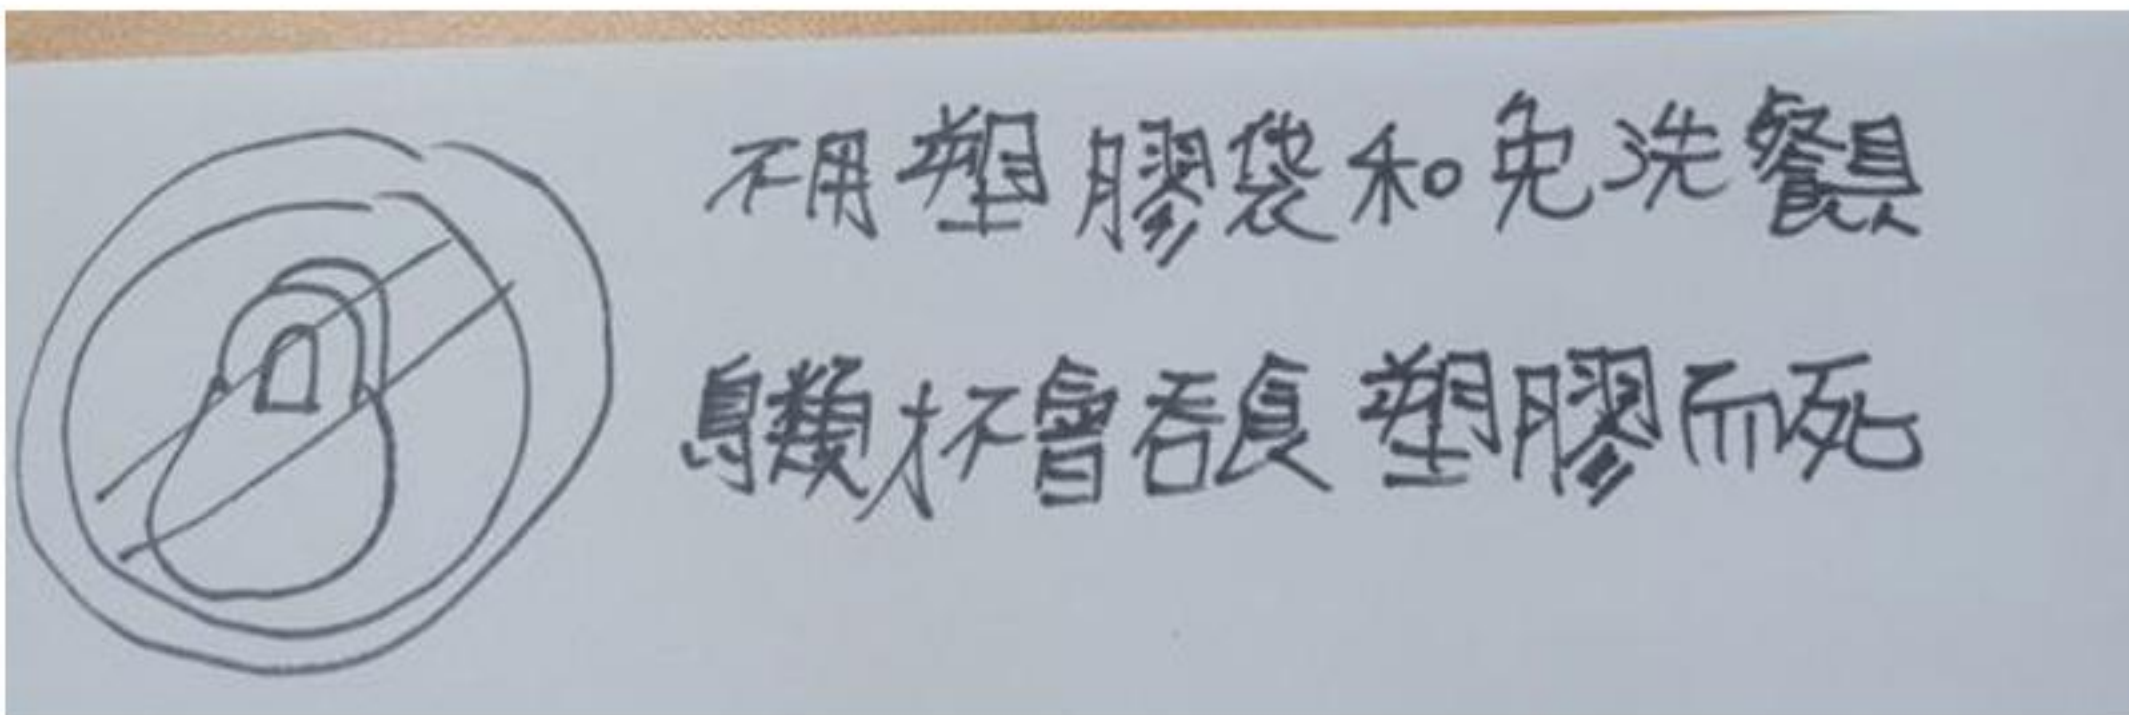 不用塑膠袋和免洗餐具
鳥類才不會吞食塑膠而死